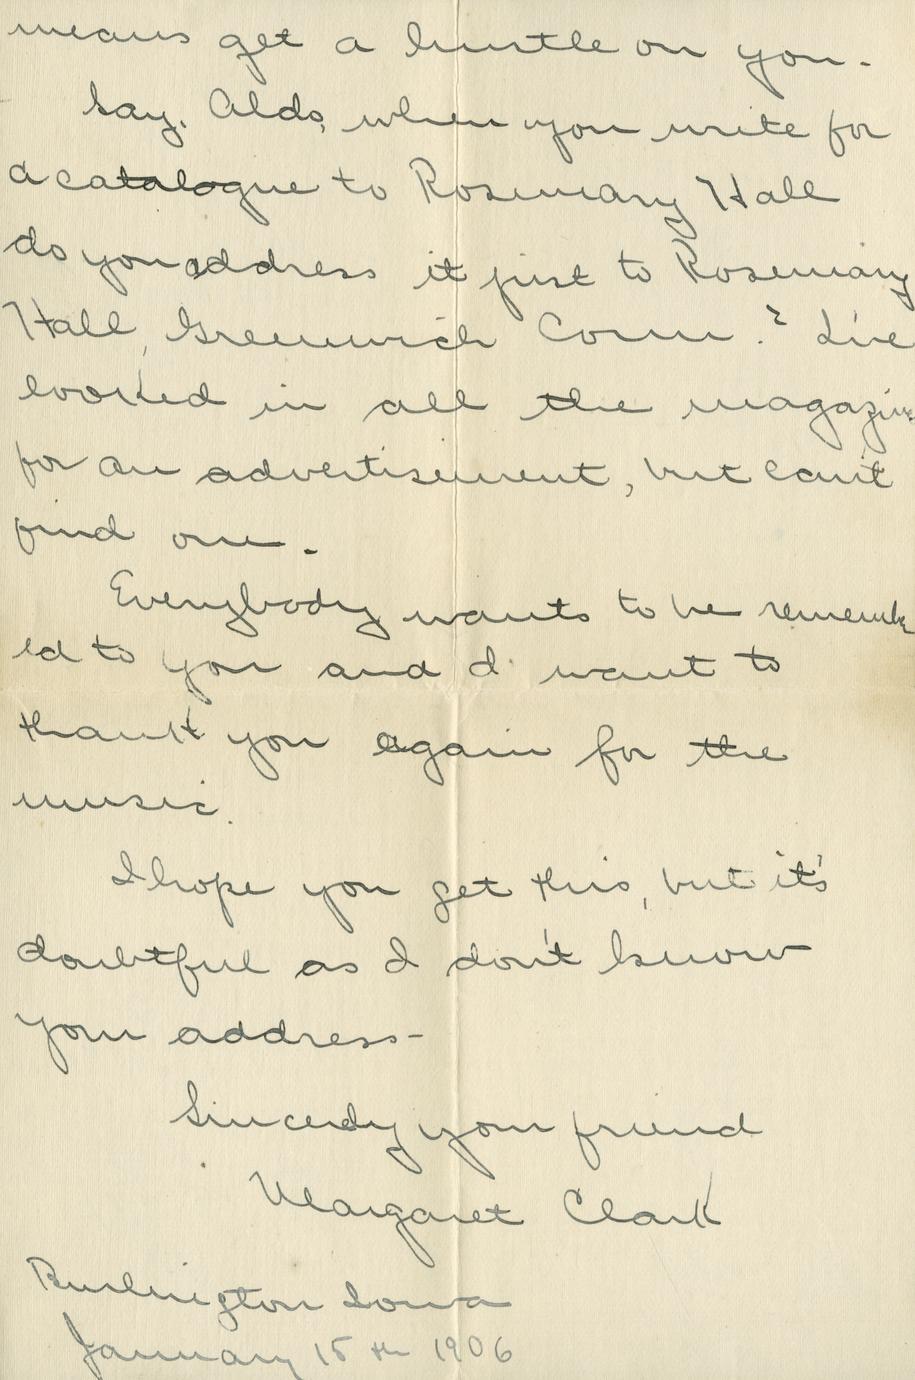 means get a hustle on you.
Say, Aldo, when you write for
a catalogue to Rosemary Hall
do you address it just to Rosemary
Hall, Greenwich Conn.? I've
looked in all the magazines
for an advertisement, but can't
find one.
Everybody wants to be remember
ed to you and I want to
thank you again for the
music.
I hope you get this, but it's
doubtful as I don't know
your address-
Sincerely your friend
Margaret Clark
Burlington Iowa
January 15th 1906